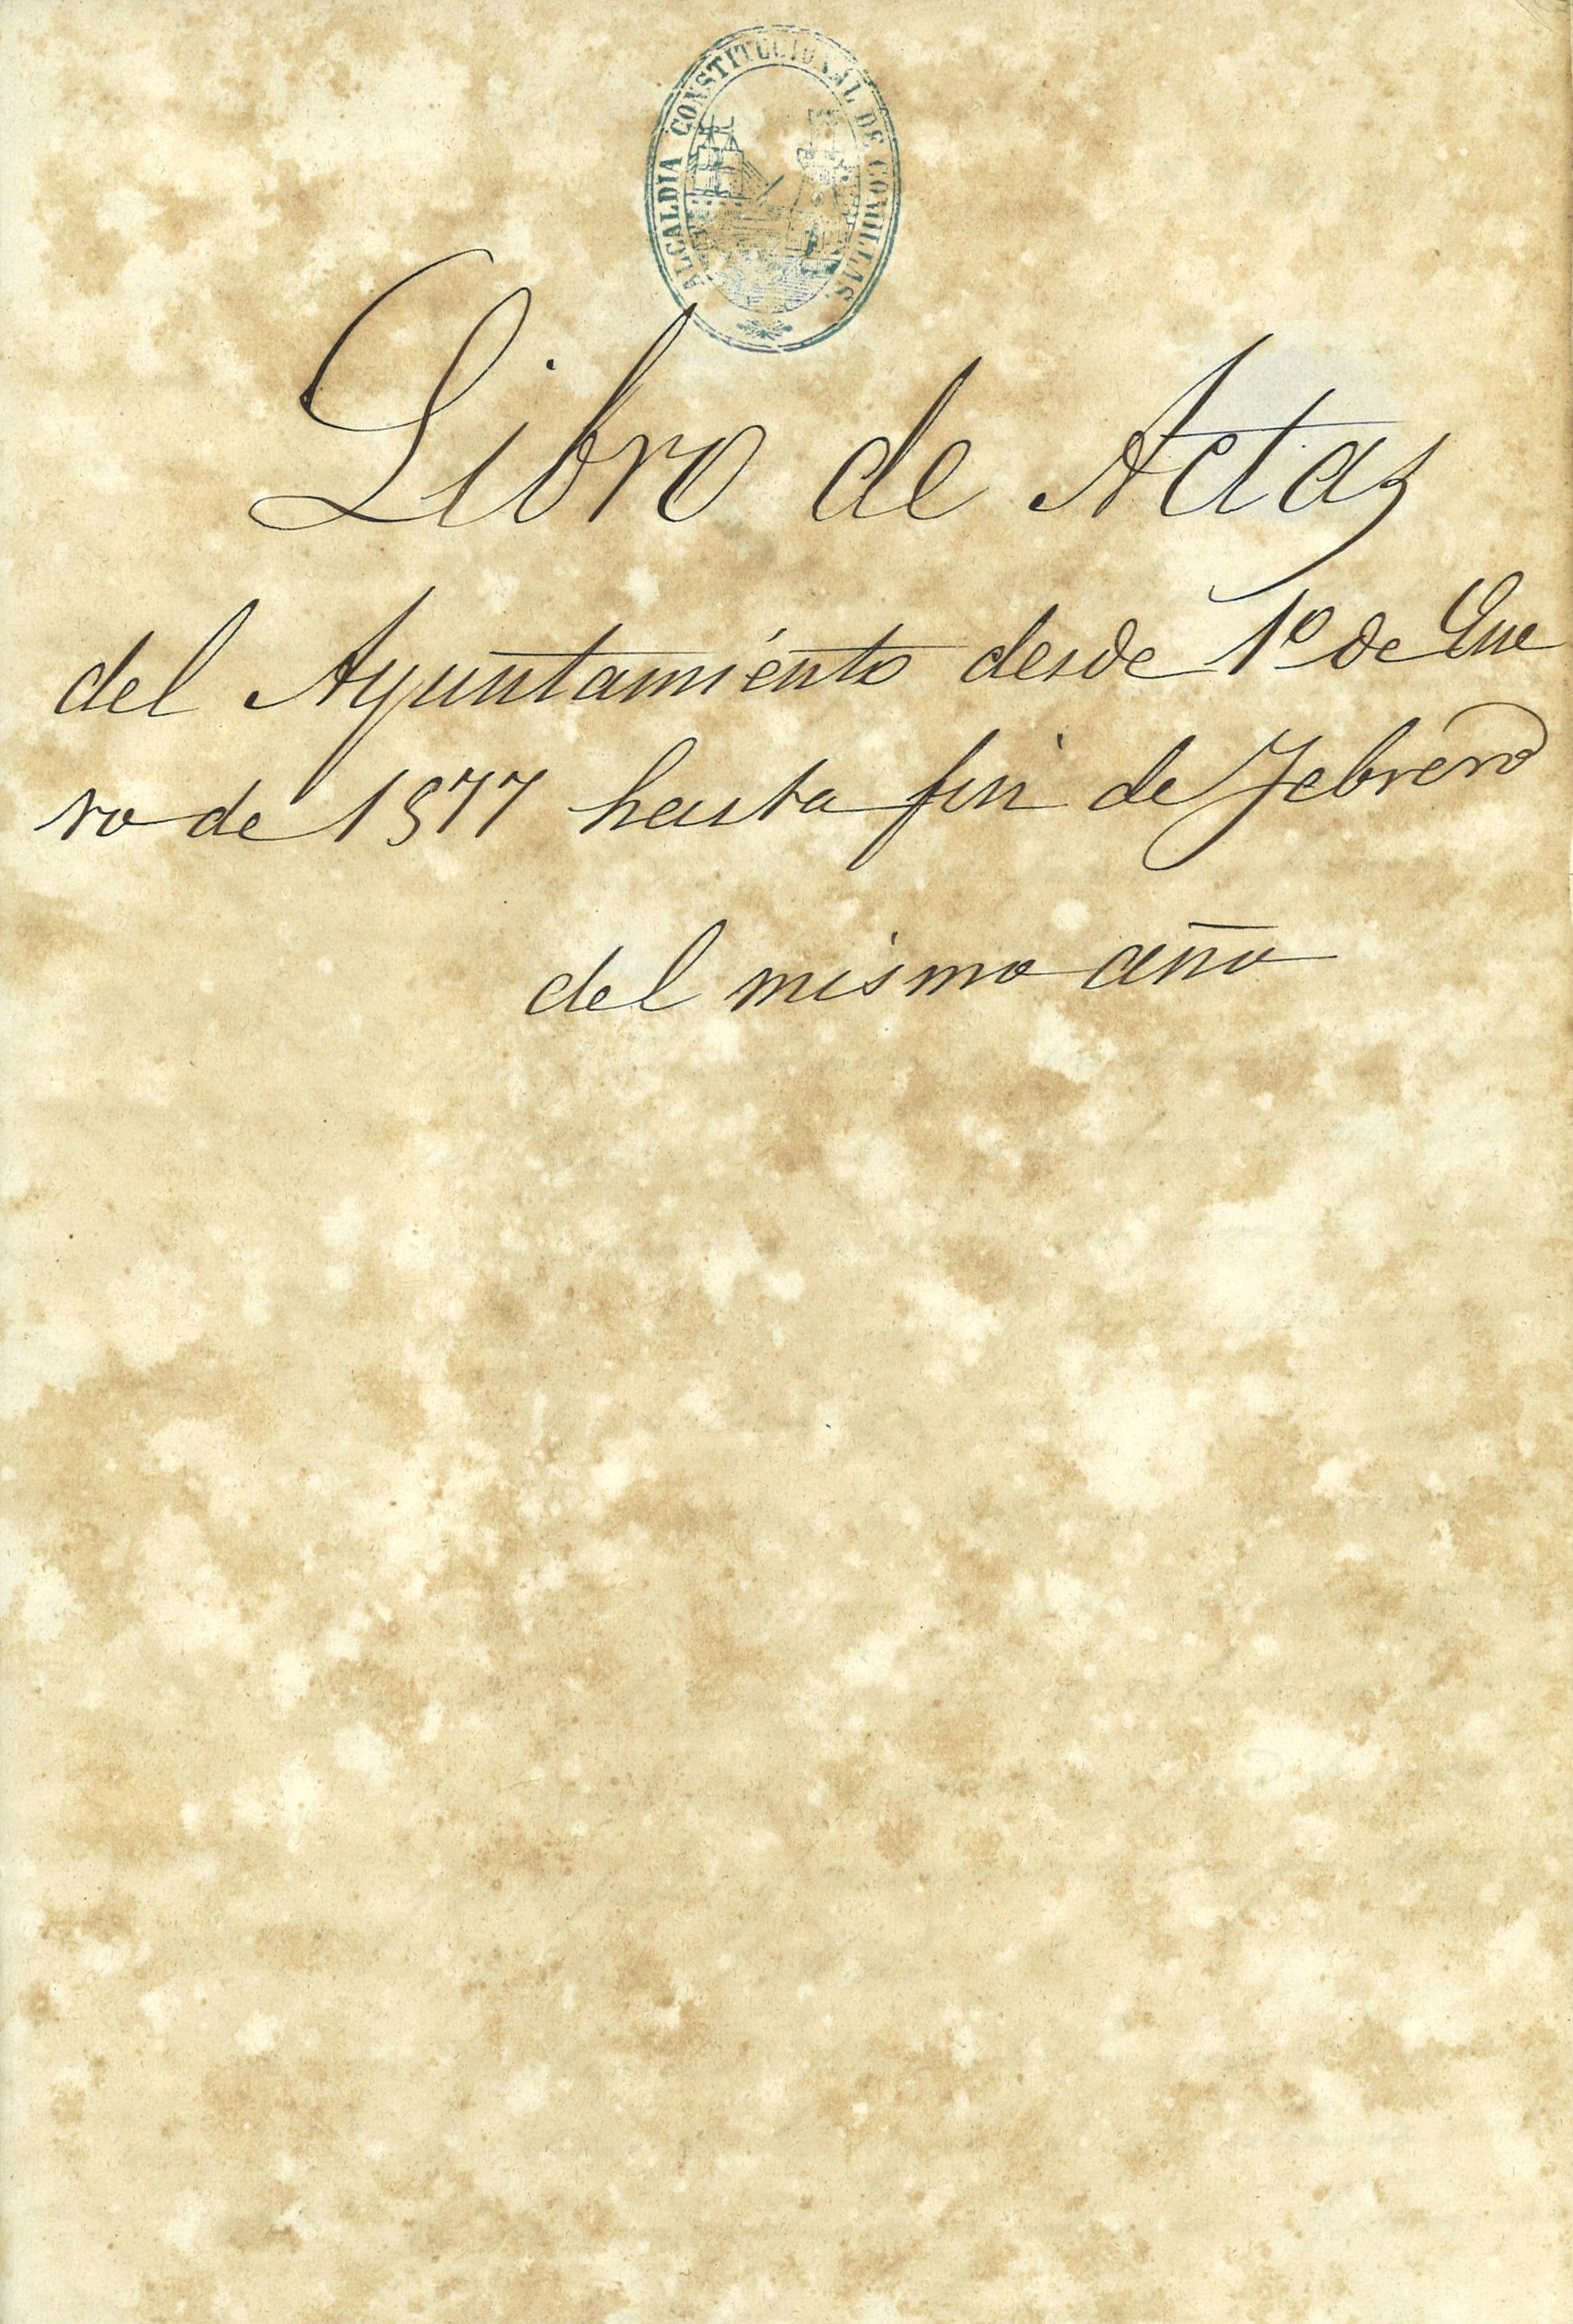 ALCALDIA CONSTITUCIONAL DE COMILLAS.
Libro de Actas
del Ayuntamiento desde 1º de Ene
ro de 1877 hasta fin de Febrero
del mismo año